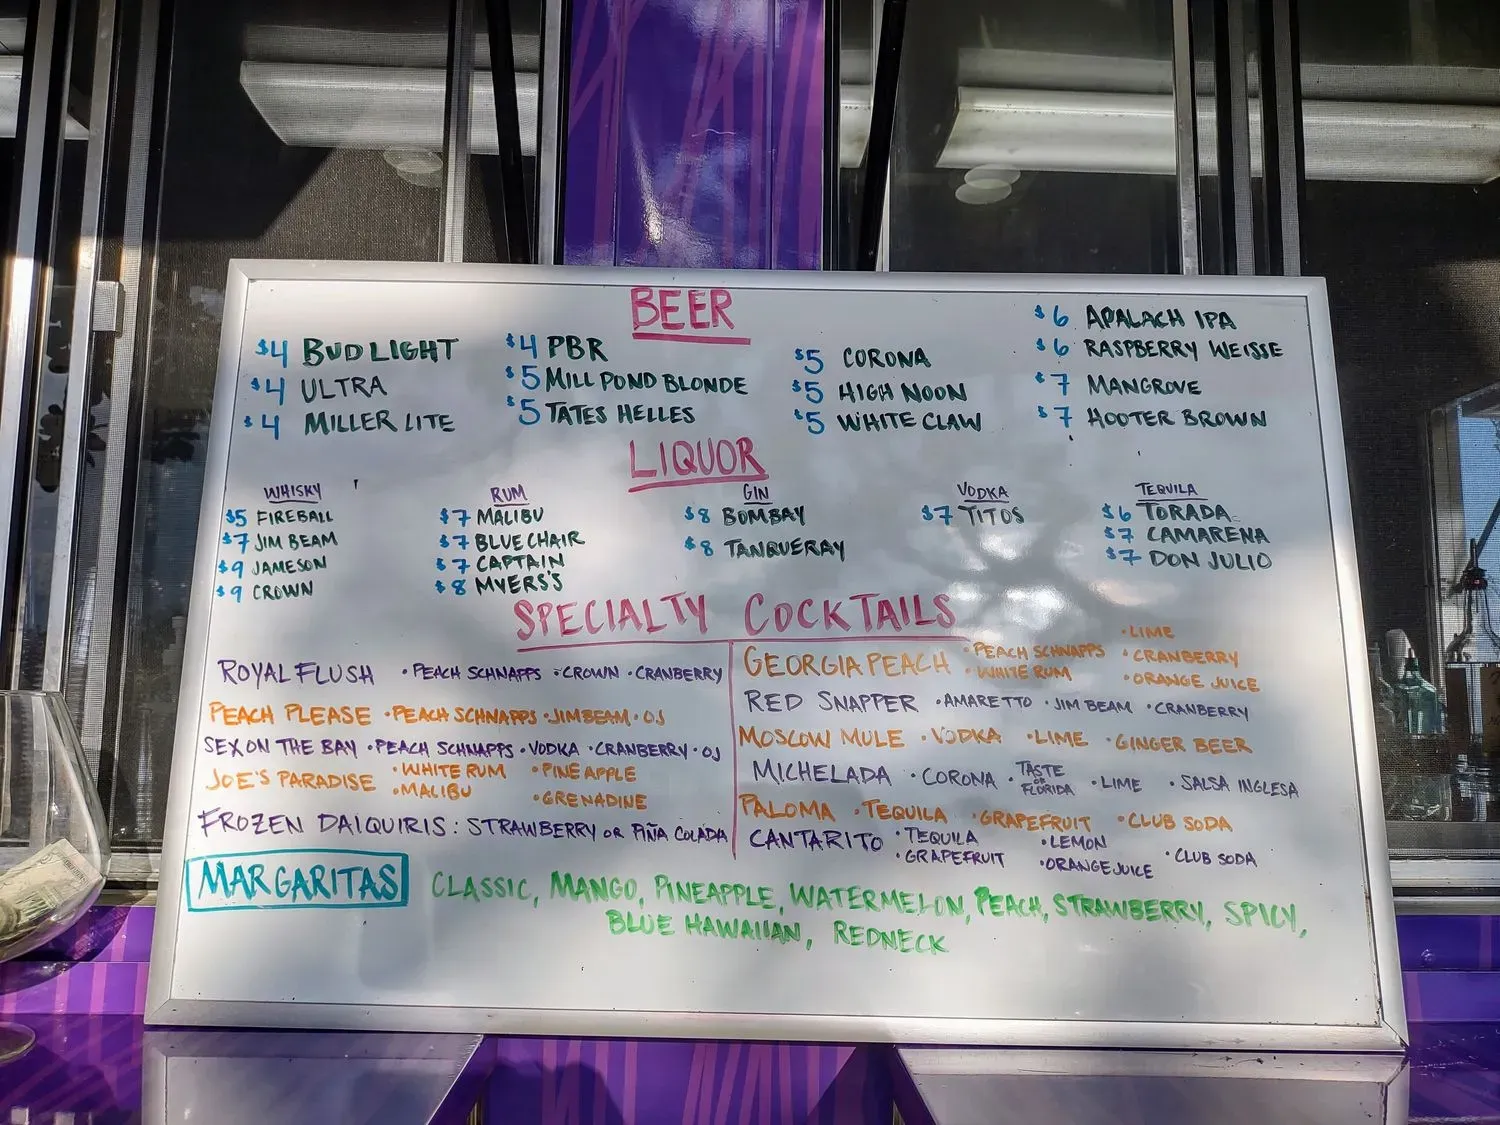 BEER
$4 BUD LIGHT
$4 ULTRA
$4 MILLER LITE
$4 PBR
$5 MILL POND BLONDE
$5 TATES HELLES
$5 CORONA
$5 HIGH NOON
$5 WHITE CLAW
$6 APALACH IPA
$6 RASPBERRY WEISSE
$7 MANGROVE
$7 HOOTER BROWN
LIQUOR
WHISKY
$5 FIREBALL
$7 JIM BEAM
$9 JAMESON
$9 CROWN
RUM
$7 MALIBU
$7 BLUE CHAIR
$7 CAPTAIN
$8 MYERS'S
GIN
$8 BOMBAY
$8 TANQUERAY
VODKA
$7 TITOS
TEQUILA
$6 TORADA
$7 CAMARENA
$7 DON JULIO
SPECIALTY COCKTAILS
ROYAL FLUSH • PEACH SCHNAPPS • CROWN • CRANBERRY
PEACH PLEASE • PEACH SCHNAPPS • JIM BEAM • OJ
SEX ON THE BAY • PEACH SCHNAPPS • VODKA • CRANBERRY • OJ
JOE'S PARADISE • WHITE RUM • PINEAPPLE
• MALIBU • GRENADINE
FROZEN DAIQUIRIS: STRAWBERRY OR PIÑA COLADA
GEORGIA PEACH • PEACH SCHNAPPS • LIME
• WHITE RUM • CRANBERRY
• ORANGE JUICE
RED SNAPPER • AMARETTO • JIM BEAM • CRANBERRY
MOSCOW MULE • VODKA • LIME • GINGER BEER
MICHELADA • CORONA • TASTE OF FLORIDA • LIME • SALSA INGLESA
PALOMA • TEQUILA • GRAPEFRUIT • CLUB SODA
CANTARITO • TEQUILA • LEMON • CLUB SODA
• GRAPEFRUIT • ORANGE JUICE
MARGARITAS CLASSIC, MANGO, PINEAPPLE, WATERMELON, PEACH, STRAWBERRY, SPICY,
BLUE HAWAIIAN, REDNECK